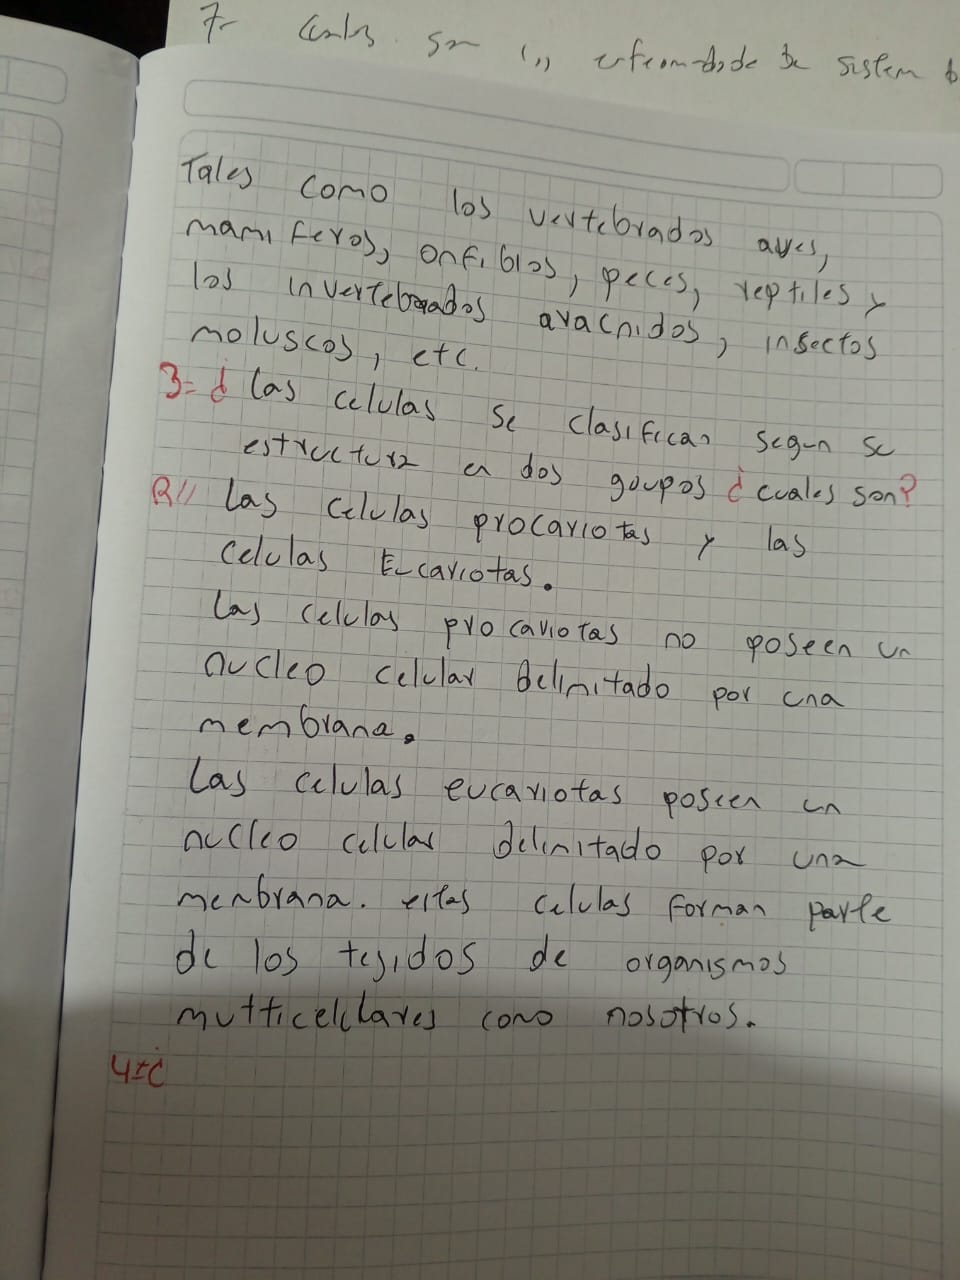 7- son sistem
Tales como los vertebrados aves,
mamiferos, anfibios, peces, reptiles y
los invertebrados aracnidos, insectos
moluscos, etc.
3= ¿ las celulas se clasifican segun su
estructura en dos goupos ¿ cuales son?
R// Las celulas procariotas y las
celulas Eucariotas.
Las celulas procariotas no poseen un
nucleo celular delimitado por una
membrana.
Las celulas eucariotas poseen un
nucleo celular delimitado por una
menbrana. estas celulas forman parte
de los tejidos de organismos
multicelulares como nosotros.
4=¿